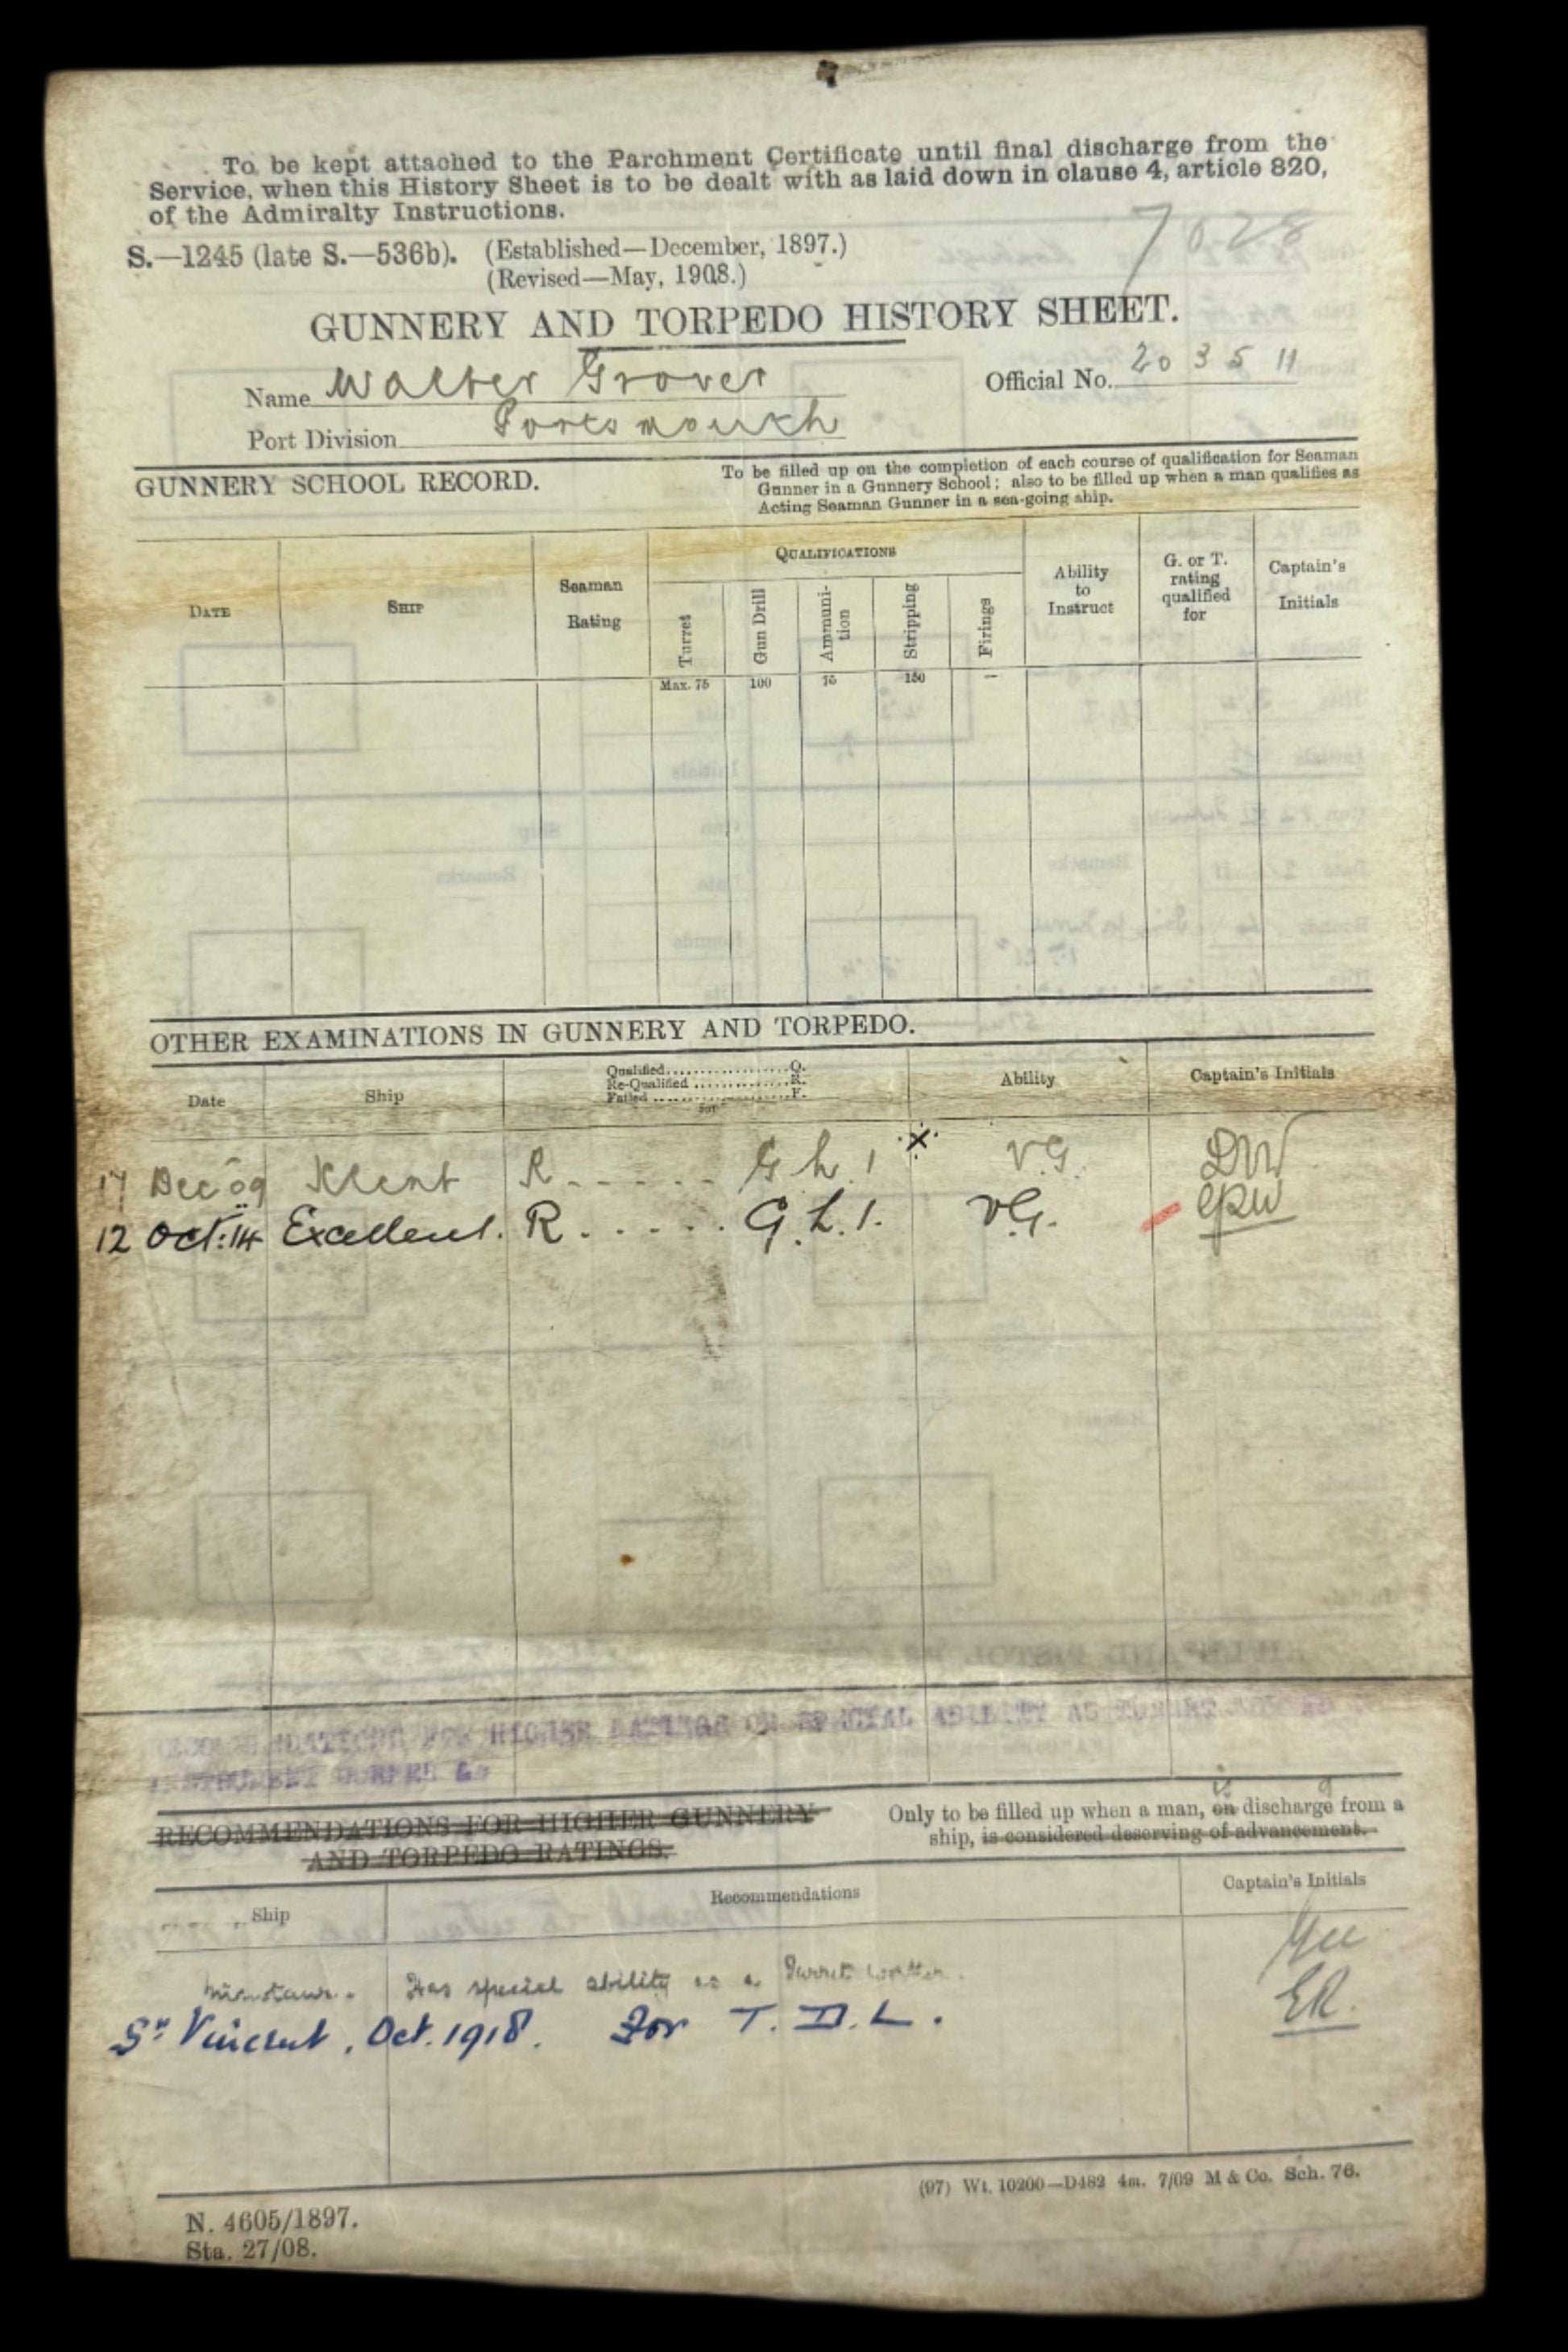 To be kept attached to the Parchment Certificate until final discharge from the
Service, when this History Sheet is to be dealt with as laid down in clause 4, article 820,
of the Admiralty Instructions.
7028
S.—1245 (late S.—536b). (Established—December, 1897.)
(Revised—May, 1908.)
GUNNERY AND TORPEDO HISTORY SHEET.
Name Walter Grover Official No. 203511
Port Division Portsmouth
GUNNERY SCHOOL RECORD.
To be filled up on the completion of each course of qualification for Seaman
Gunner in a Gunnery School; also to be filled up when a man qualifies as
Acting Seaman Gunner in a sea-going ship.
DATE SHIP Seaman Rating QUALIFICATIONS Turret Gun Drill Ammuni-tion Stripping Firings Ability to Instruct G. or T. rating qualified for Captain's Initials
Max. 75 100 75 150 —
OTHER EXAMINATIONS IN GUNNERY AND TORPEDO.
Date Ship Qualified Q. Ability Captain's Initials
Re-Qualified R.
Failed F.
for
17 Dec 09 Kent R G L 1 x V.G. DW
12 Oct: 14 Excellent. R G.L.1. VG. EPW
RECOMMENDATIONS FOR HIGHER RATINGS OR SPECIAL ABILITY AS TURRET
INSTRUMENT WORKER &c
RECOMMENDATIONS FOR HIGHER GUNNERY
AND TORPEDO RATINGS.
Only to be filled up when a man, on is discharge from a
ship, is considered deserving of advancement.
Ship Recommendations Captain's Initials
Minotaur. Has special ability as a Turret worker.
St Vincent, Oct. 1918. For T.D.L. ER.
(97) Wt. 10200—D482 4m. 7/09 M & Co. Sch. 76.
N. 4605/1897.
Sta. 27/08.